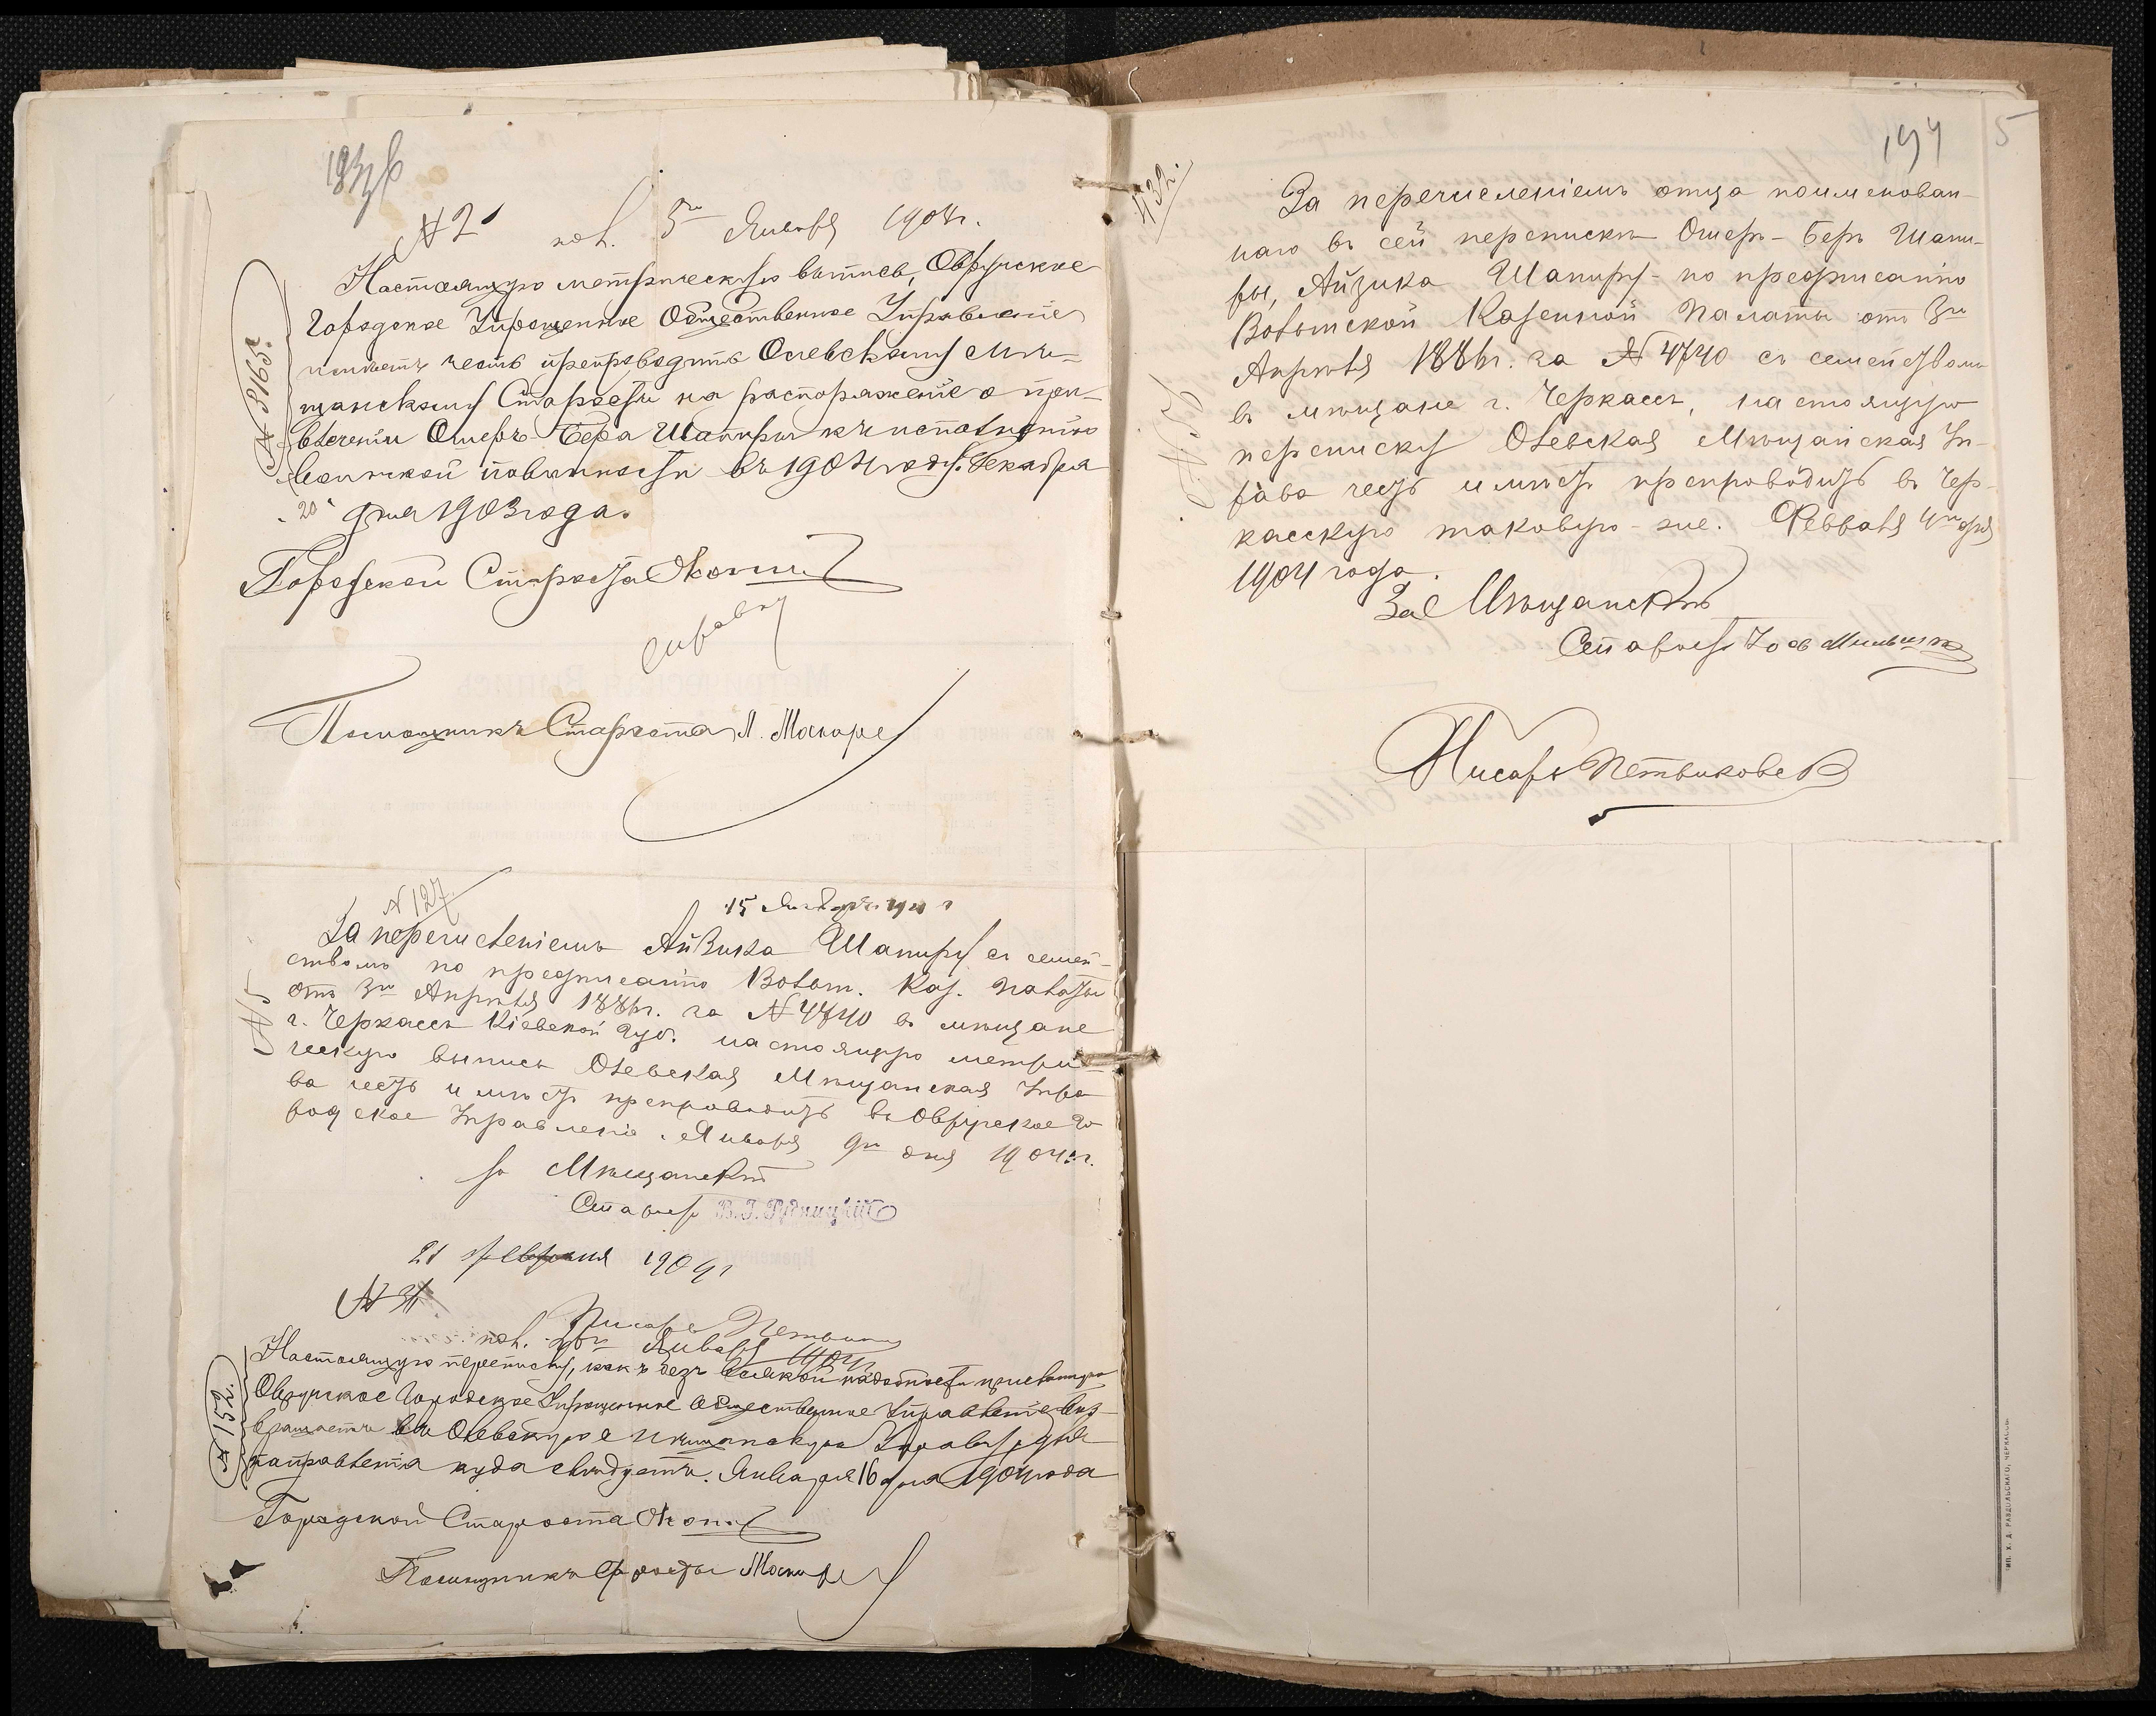 № 2
пол. 5го Января 1904 г.
№ 3165.
Настоящую метрическую выпись, Овручское
Городское Упрощенное Общественное Управление
имеетъ честь препроводить Олевскому Мѣ-
щанскому Старостѣ на распоряженіе о при-
влеченіи Ошеръ-Бера Шапиры къ исполненію
воинской повинности въ 1904 году. Декабря
"20" дня 1903 года.
Городской Староста
справку
Помощникъ Старосты М. Москаре
№ 127
15 Января 190 г
За перечисленіемъ Айзика Шапиру съ семей-
ствомъ по предписанію Волын. Каз. Палаты
отъ 3го Апрѣля 1886 г. за № 4740 въ мѣщане
г. Черкассъ Кіевской Губ. настоящую метри-
ческую выпись Олевская Мѣщанская Упра-
ва честь имѣетъ препроводить въ Овручское Го-
родское Управленіе. Января 9го дня 1904 г.
№ 5
за Мѣщанскій
Староста В. Г. Рудницкій
21 февраля 1904 г
№ 31
Писарь
пол. Января 1904 г.
№ 152.
Настоящую переписку, какъ безъ всякой надобности присланную
Овручское Городское Упрощенное Общественное Управленіе воз-
вращаетъ въ Олевскую Мѣщанскую Управу для
направленія куда слѣдуетъ. Января 16 дня 1904 года
Городской Староста
Помощникъ Старосты Москаре
194
5
432.
За перечисленіемъ отца поименован-
наго въ сей перепискѣ Ошеръ-Беръ Шапи-
ры, Айзика Шапиру - по предписанію
Волынской Казенной Палаты отъ 3го
Апрѣля 1886 г. за № 4740 съ семействомъ
въ мѣщане г. Черкассъ, настоящую
переписку Олевская Мѣщанская Уп-
рава честь имѣетъ препроводить въ Чер-
касскую таковую-же. Февраля 4го дня
1904 года.
За Мѣщанскій
Староста
Писарь
ТИП. Х. Д. РАЗДОЛЬСКАГО, ЧЕРКАССЫ.